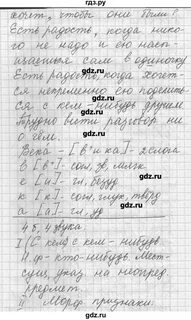 гдз.ру
хотят, чтобы они были?
Есть радость, когда нико-
го не надо и ею насл-
щаешься сам в одиночку
Есть радость, когда хочет-
ся непременно ею поделить-
ся с кем-нибудь другим
Трудно вести разговор ни
о чём.
Века - [в'ика] - 2 слога
в [в'] - согл, зв, мягк
е [и] - гл, безуд
к [к] - согл, глух, твёрд
а [а] - гл, уд
4 б, 4 звука
I (С кем) с кем-нибудь
Н.ф - кто-нибудь. Мест-
сущ, указ на неопред
предмет.
II Морф. признаки:
gdz.ru